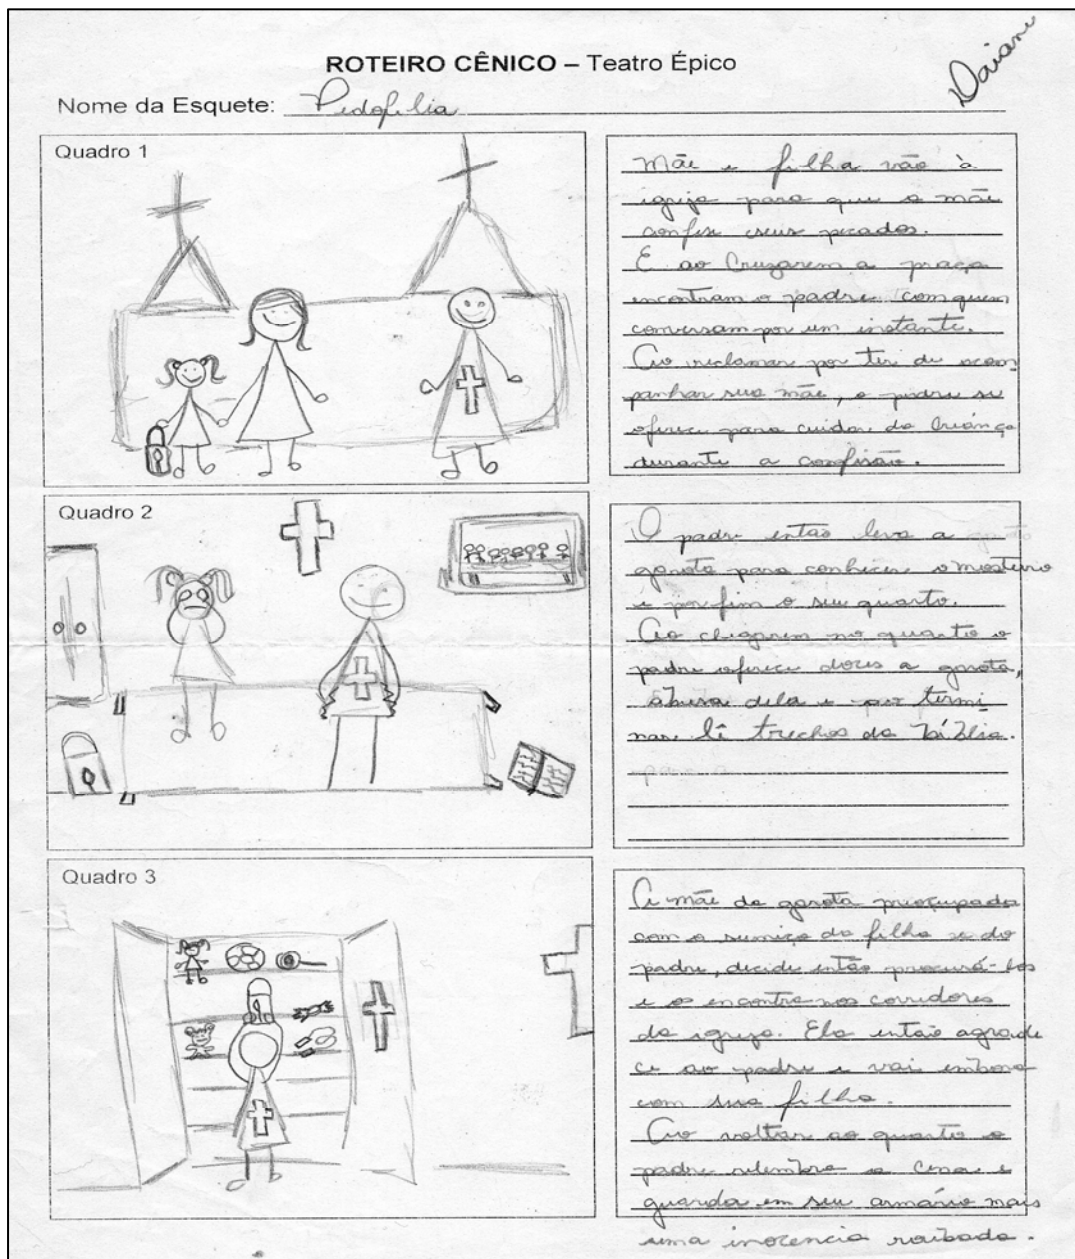 ROTEIRO CÊNICO – Teatro Épico
Daiane
Nome da Esquete: Pedofilia
Quadro 1
Mãe e filha vão à
igreja para que a mãe
confesse seus pecados.
E ao Cruzarem a praça
encontram o padre com quem
conversam por um instante.
Ao reclamar por ter de acom
panhar sua mãe, o padre se
oferece para cuidar da criança
durante a confissão.
Quadro 2
O padre então leva a
garota para conhecer o mosteiro
e por fim o seu quarto.
Ao chegarem no quarto o
padre oferece doces a garota,
abusa dela e por termi
nar lê trechos da bíblia.
Quadro 3
A mãe da garota preocupada
com o sumiço da filha e do
padre, decide então procurá-los
e os encontra nos corredores
da igreja. Ela então agrade
ce ao padre e vai embora
com sua filha.
Ao voltar ao quarto o
padre relembra a cena e
guarda em seu armário mais
uma inocencia roubada.